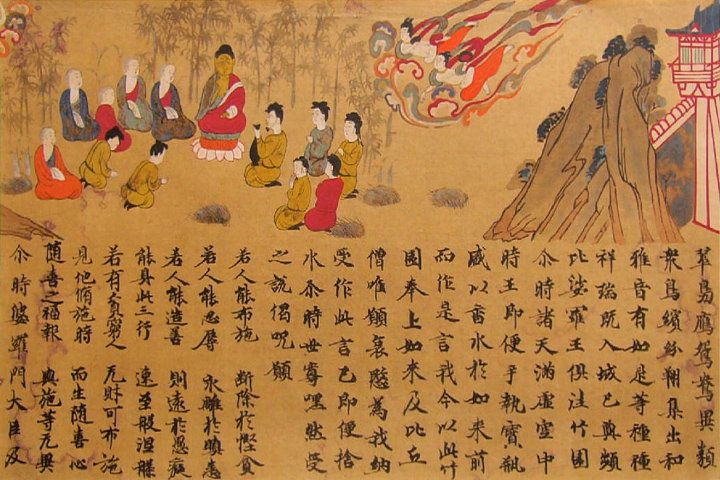 翠鳥鷹鴛鴦異類
衆鳥繽紛翔集出和
雅音有如是等種種
祥瑞既入城已與頻
比娑羅王俱往竹園
尒時諸天滿虛空中
時王即便手執寶瓶
盛以香水於如來前
而作是言我今以此竹
園奉上如來及比丘
僧唯願哀愍為我納
受作此言已即便捨
水尒時世尊嘿然受
之說偈呪願
若人能布施 斷除於慳貪
若人能忍辱 永離於瞋恚
若人能造善 則遠於愚癡
能具此三行 速至般涅槃
若有貧窮人 无財可布施
見他脩施時 而生随喜心
随喜之福報 與施等无異
尒時婆羅門大臣及